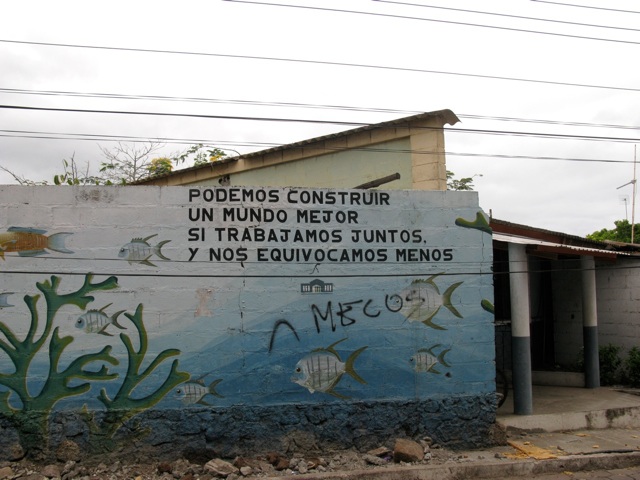 PODEMOS CONSTRUIR
UN MUNDO MEJOR
SI TRABAJAMOS JUNTOS,
Y NOS EQUIVOCAMOS MENOS
MECOS